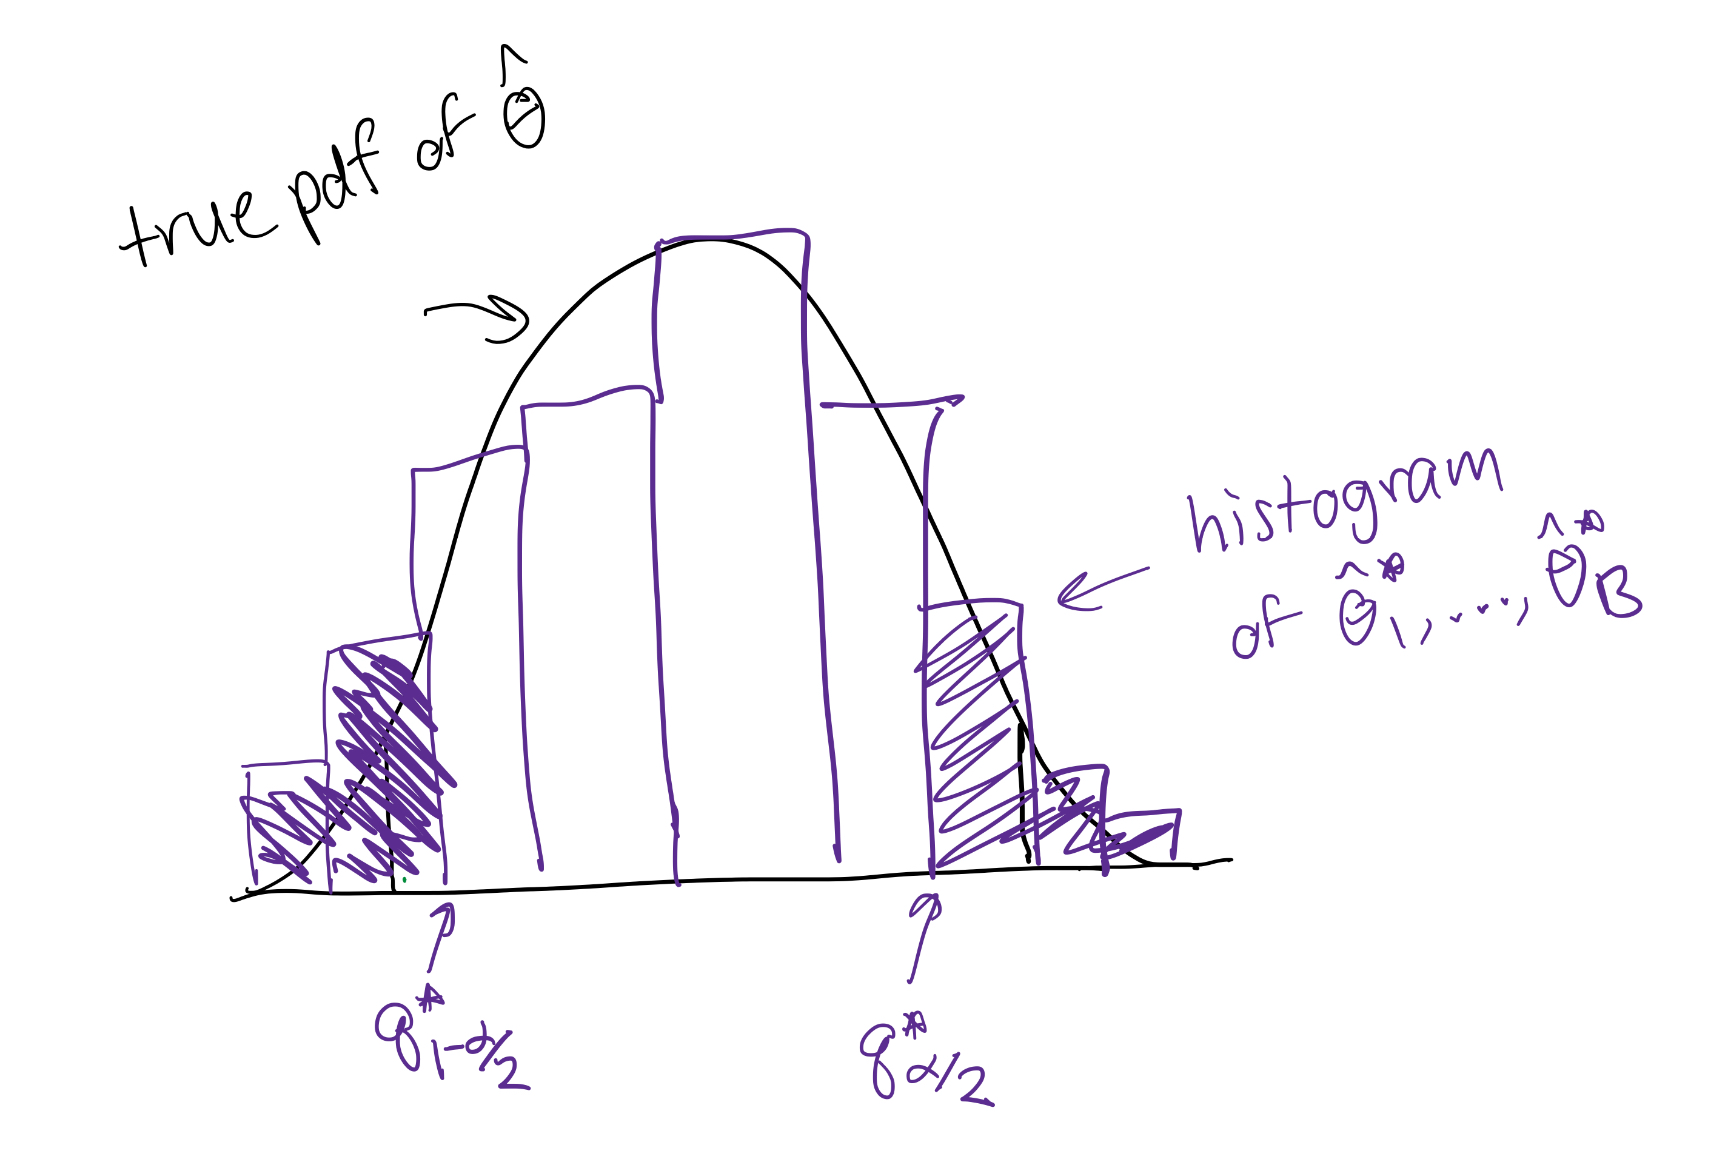 true pdf of θ̂
histogram
of θ̂*₁, ..., θ̂*_B
q*_{1-α/2}
q*_{α/2}